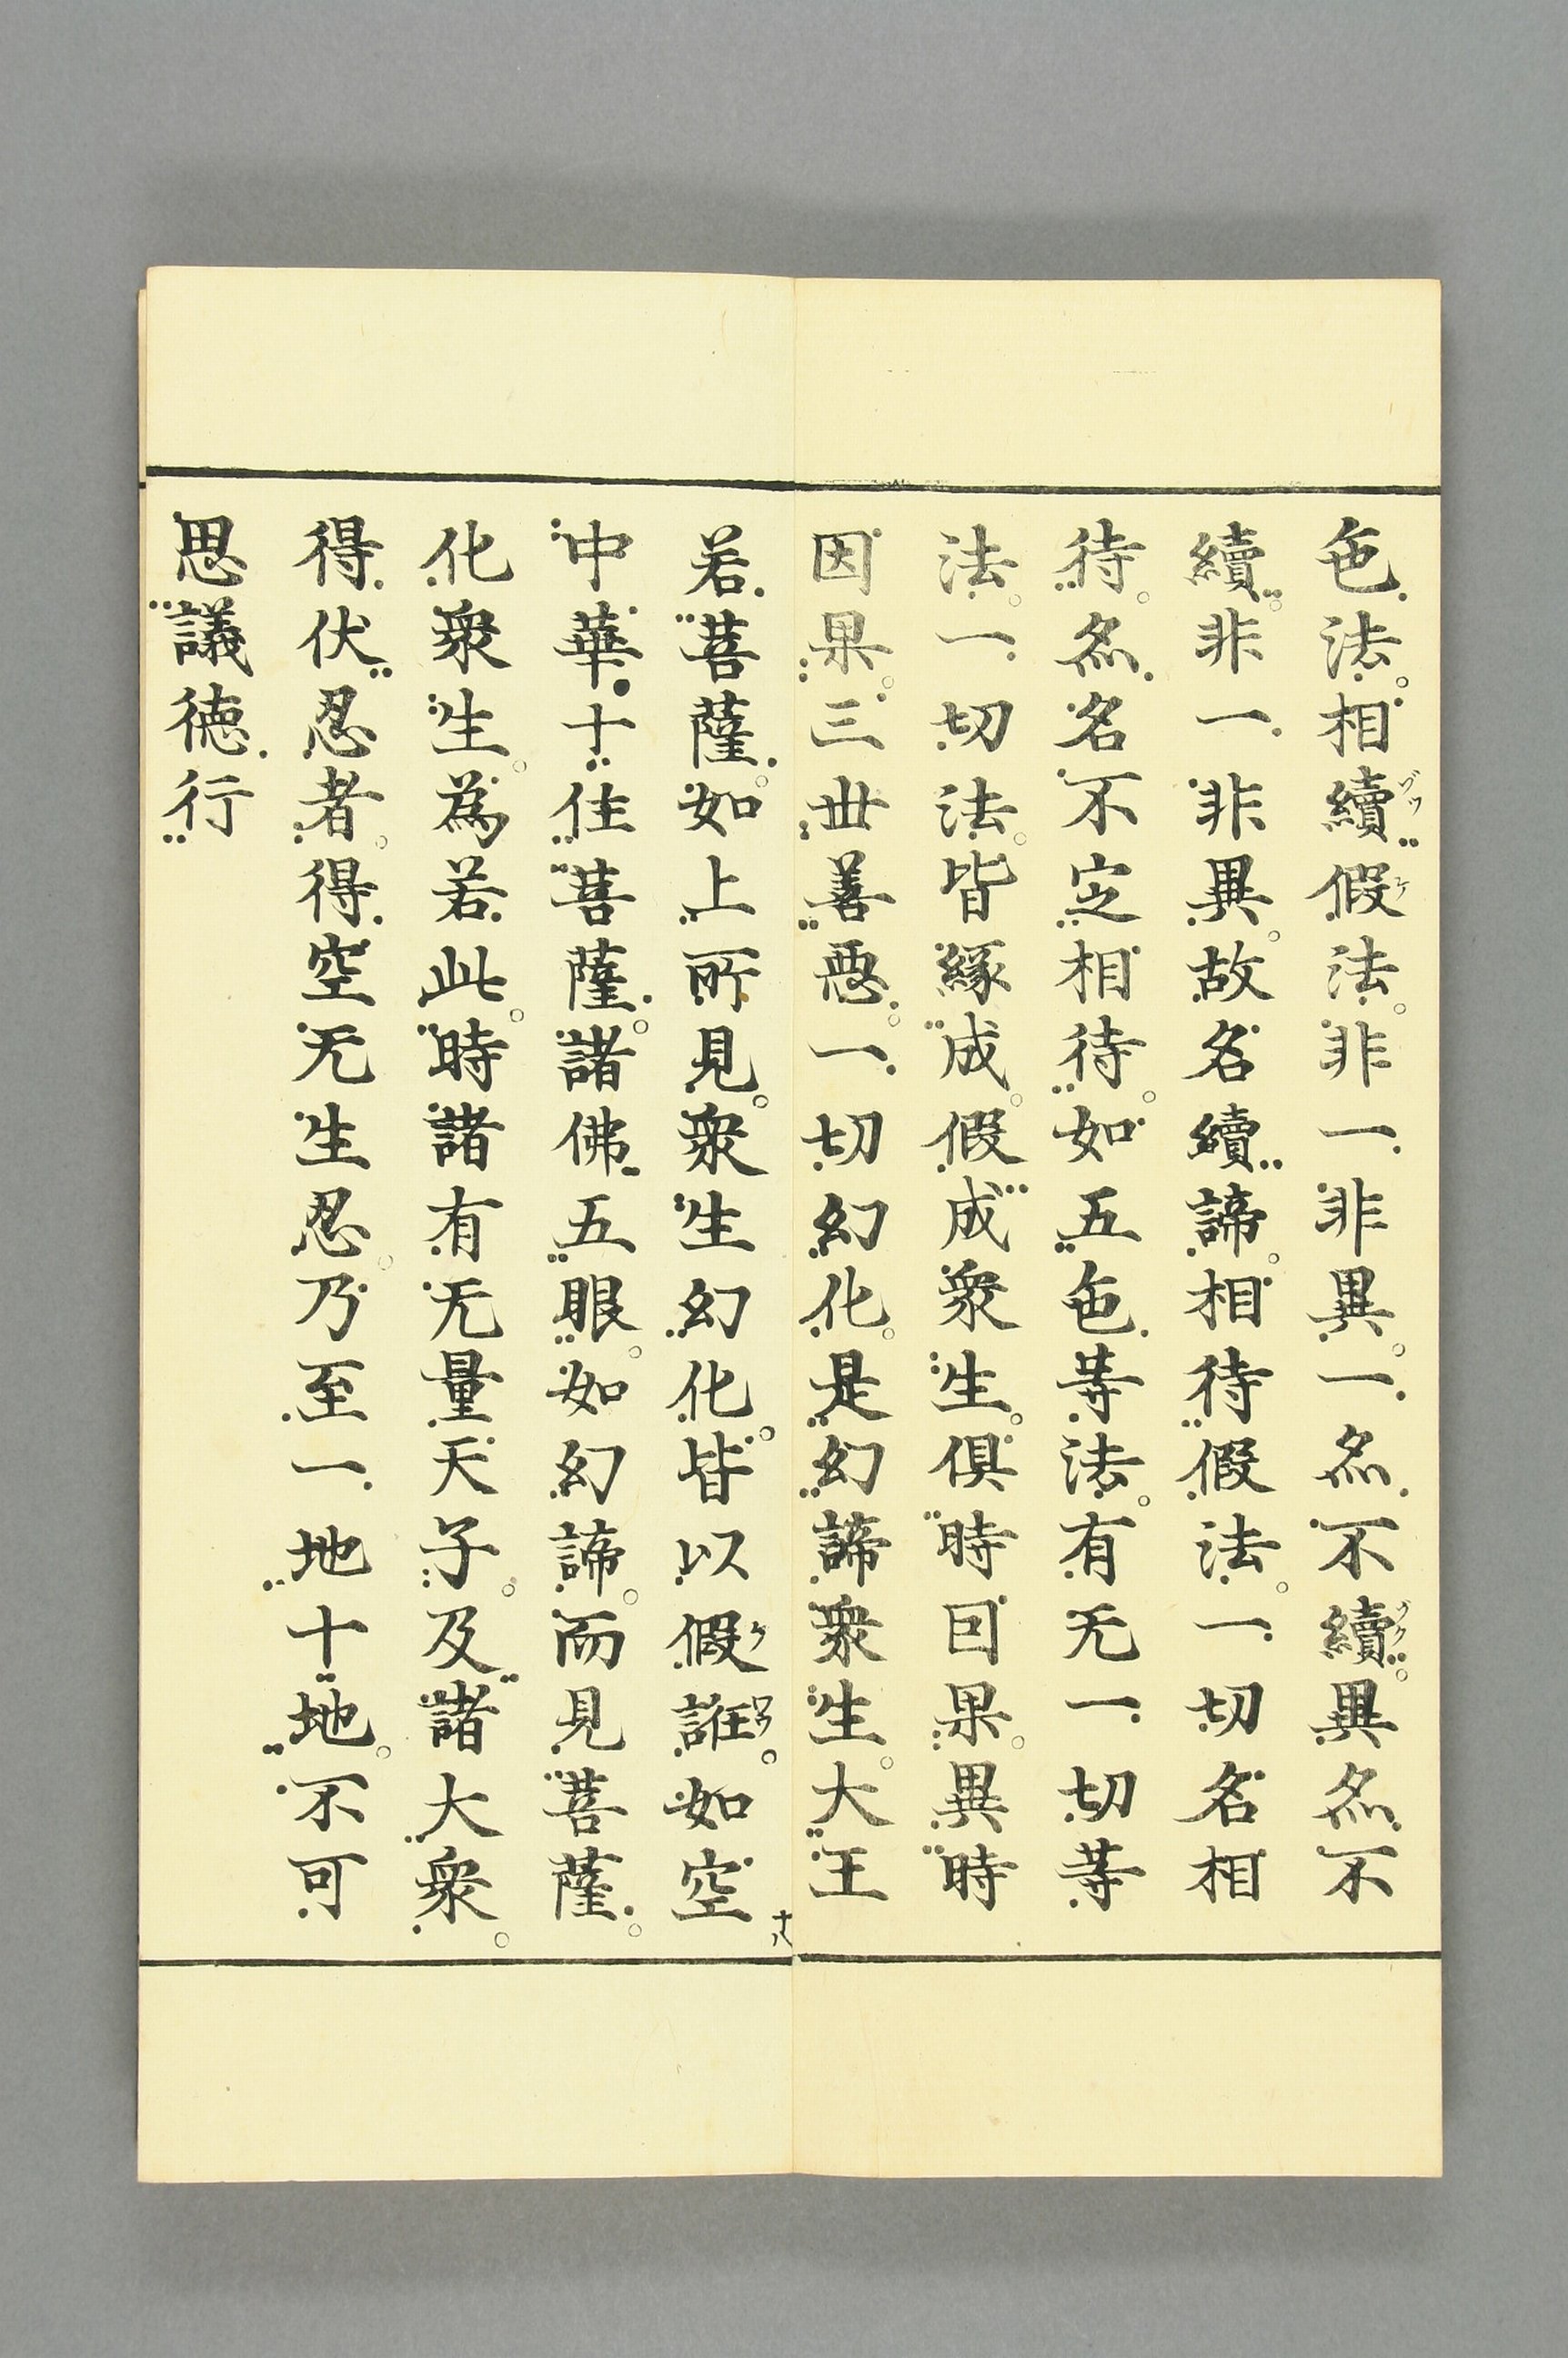 色法相續假法非一非異一亦不續異亦不
續非一非異故名續諦相待假法一切名相
待亦名不定相待如五色等法有无一切等
法一切法皆緣成假成衆生俱時因果異時
因果三世善惡一切幻化是幻諦衆生大王
若菩薩如上所見衆生幻化皆以假誑如空
中華十住菩薩諸佛五眼如幻諦而見菩薩
化衆生為若此時諸有无量天子及諸大衆
得伏忍者得空无生忍乃至一地十地不可
思議德行
十八